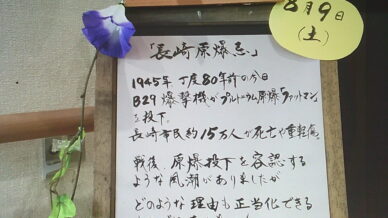 8月9日
(土)
「長崎原爆忌」
1945年 丁度80年前の今日
B29 爆撃機がプルトニウム原爆「ファットマン」
を投下。
長崎市民約15万人が死亡や重軽傷
戦後、原爆投下を容認する
ような風潮がありましたが
どのような理由も正当化できる